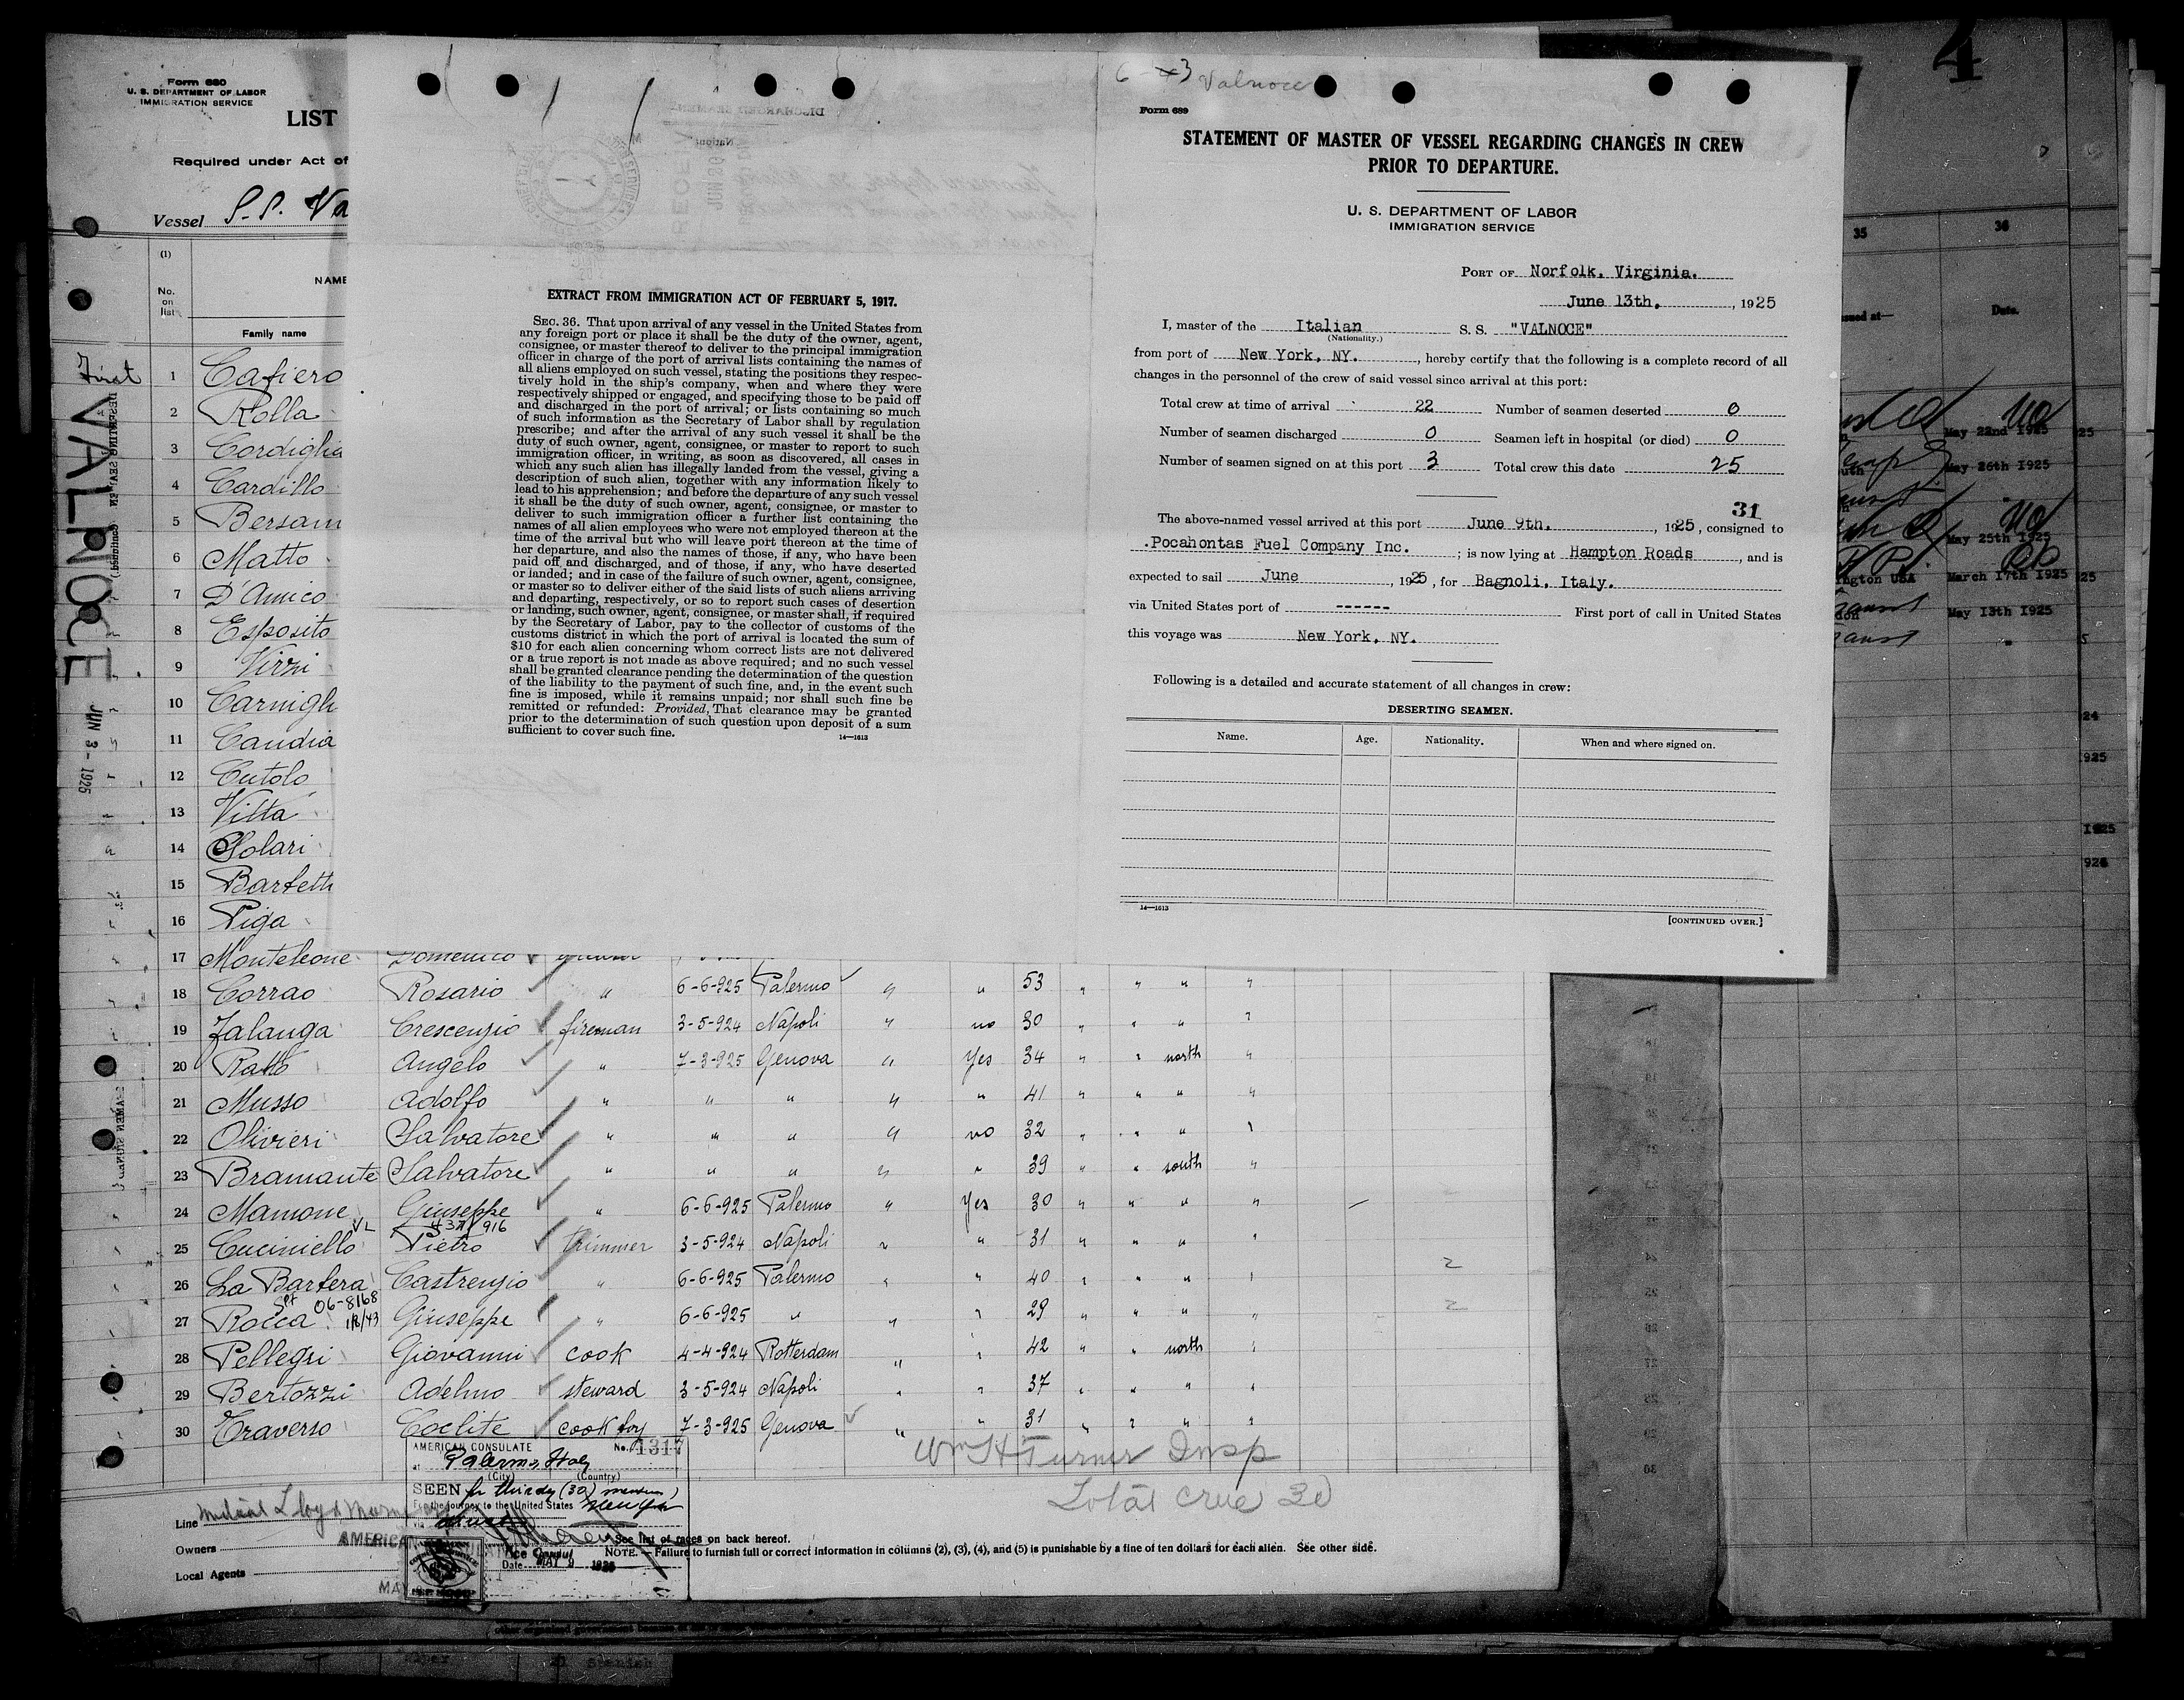 Form 680
U. S. DEPARTMENT OF LABOR
IMMIGRATION SERVICE
LIST
Required under Act of
Vessel S.S. Va
(1)
No.
on
list
NAME
Family name
First
VALNOCE
JUN 3 - 1925
1 Cafiero
2 Rolla
3 Cordiglia
4 Cardillo
5 Bersani
6 Matto
7 D'Amico
8 Esposito
9 Virzi
10 Carnigli
11 Candia
12 Cutolo
13 Vitta
14 Solari
15 Barfetti
16 Piga
17 Monteleone Domenico
18 Corrao Rosario " 6-6-925 Palermo " " 53 " " " "
19 Zalanga Crescenzio fireman 3-5-924 Napoli " no 30 " " " "
20 Ratto Angelo " 7-3-925 Genova " Yes 34 " " north "
21 Musso Adolfo " " " " " 41 " " " "
22 Olivieri Salvatore " " " " no 32 " " " "
23 Bramante Salvatore " " " " " 39 " " south "
24 Mamone Giuseppe " 6-6-925 Palermo " Yes 30 " " " "
25 Cuciniello Pietro trimmer 3-5-924 Napoli " " 31 " " " "
26 La Barbera Castrenzio " 6-6-925 Palermo " " 40 " " " "
06-8168
27 Rocca Giuseppe " 6-6-925 " " " 29 " " " "
28 Pellegri Giovanni cook 4-4-924 Rotterdam " " 42 " " north "
29 Bertozzi Adelmo steward 3-5-924 Napoli " " 37 " " " "
30 Traverso Coclite cook boy 7-3-925 Genova " " 31 " " " "
Wm H Turner Insp
Total crue 30
AMERICAN CONSULATE No. 1317
at Palermo, Italy
(City) (Country)
SEEN for thirty (30)
For the journey to the United States
Vice Consul
Date MAY 9
Line
Owners
Local Agents
See list of races on back hereof.
NOTE.—Failure to furnish full or correct information in columns (2), (3), (4), and (5) is punishable by a fine of ten dollars for each alien. See other side.
EXTRACT FROM IMMIGRATION ACT OF FEBRUARY 5, 1917.
SEC. 36. That upon arrival of any vessel in the United States from
any foreign port or place it shall be the duty of the owner, agent,
consignee, or master thereof to deliver to the principal immigration
officer in charge of the port of arrival lists containing the names of
all aliens employed on such vessel, stating the positions they respec-
tively hold in the ship's company, when and where they were
respectively shipped or engaged, and specifying those to be paid off
and discharged in the port of arrival; or lists containing so much
of such information as the Secretary of Labor shall by regulation
prescribe; and after the arrival of any such vessel it shall be the
duty of such owner, agent, consignee, or master to report to such
immigration officer, in writing, as soon as discovered, all cases in
which any such alien has illegally landed from the vessel, giving a
description of such alien, together with any information likely to
lead to his apprehension; and before the departure of any such vessel
it shall be the duty of such owner, agent, consignee, or master to
deliver to such immigration officer a further list containing the
names of all alien employees who were not employed thereon at the
time of the arrival but who will leave port thereon at the time of
her departure, and also the names of those, if any, who have been
paid off and discharged, and of those, if any, who have deserted
or landed; and in case of the failure of such owner, agent, consignee,
or master so to deliver either of the said lists of such aliens arriving
and departing, respectively, or so to report such cases of desertion
or landing, such owner, agent, consignee, or master shall, if required
by the Secretary of Labor, pay to the collector of customs of the
customs district in which the port of arrival is located the sum of
$10 for each alien concerning whom correct lists are not delivered
or a true report is not made as above required; and no such vessel
shall be granted clearance pending the determination of the question
of the liability to the payment of such fine, and, in the event such
fine is imposed, while it remains unpaid; nor shall such fine be
remitted or refunded: Provided, That clearance may be granted
prior to the determination of such question upon deposit of a sum
sufficient to cover such fine.
14—1613
Valnoce
Form 689
STATEMENT OF MASTER OF VESSEL REGARDING CHANGES IN CREW
PRIOR TO DEPARTURE.
U. S. DEPARTMENT OF LABOR
IMMIGRATION SERVICE
PORT OF Norfolk, Virginia.
June 13th, , 1925
I, master of the Italian S. S. "VALNOCE"
(Nationality.)
from port of New York, NY. , hereby certify that the following is a complete record of all
changes in the personnel of the crew of said vessel since arrival at this port:
Total crew at time of arrival 22 Number of seamen deserted 0
Number of seamen discharged 0 Seamen left in hospital (or died) 0
Number of seamen signed on at this port 3 Total crew this date 25
31
The above-named vessel arrived at this port June 9th. , 1925, consigned to
Pocahontas Fuel Company Inc. ; is now lying at Hampton Roads , and is
expected to sail June , 1925, for Bagnoli, Italy.
via United States port of ------ First port of call in United States
this voyage was New York, NY.
Following is a detailed and accurate statement of all changes in crew:
DESERTING SEAMEN.
Name. Age. Nationality. When and where signed on.
14—1613
[CONTINUED OVER.]
4
35 36
Date.
May 22nd 1925
May 26th 1925
May 25th 1925
March 17th 1925
May 13th 1925